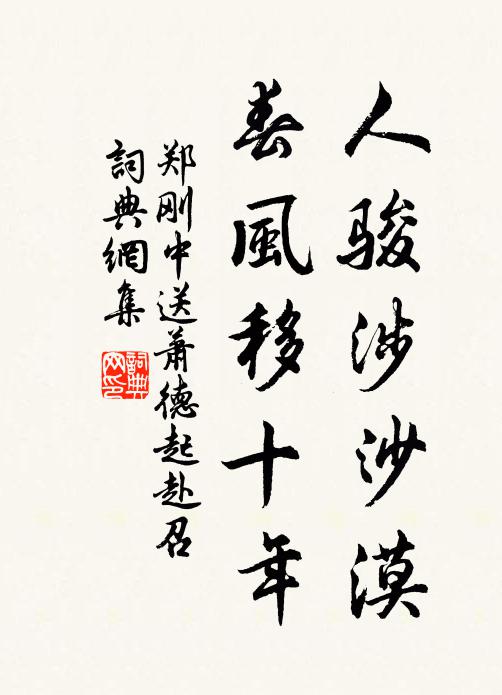 人骏涉沙漠
春風移十年
郑刚中送蕭德起赴召
詞典網集
詞典网印